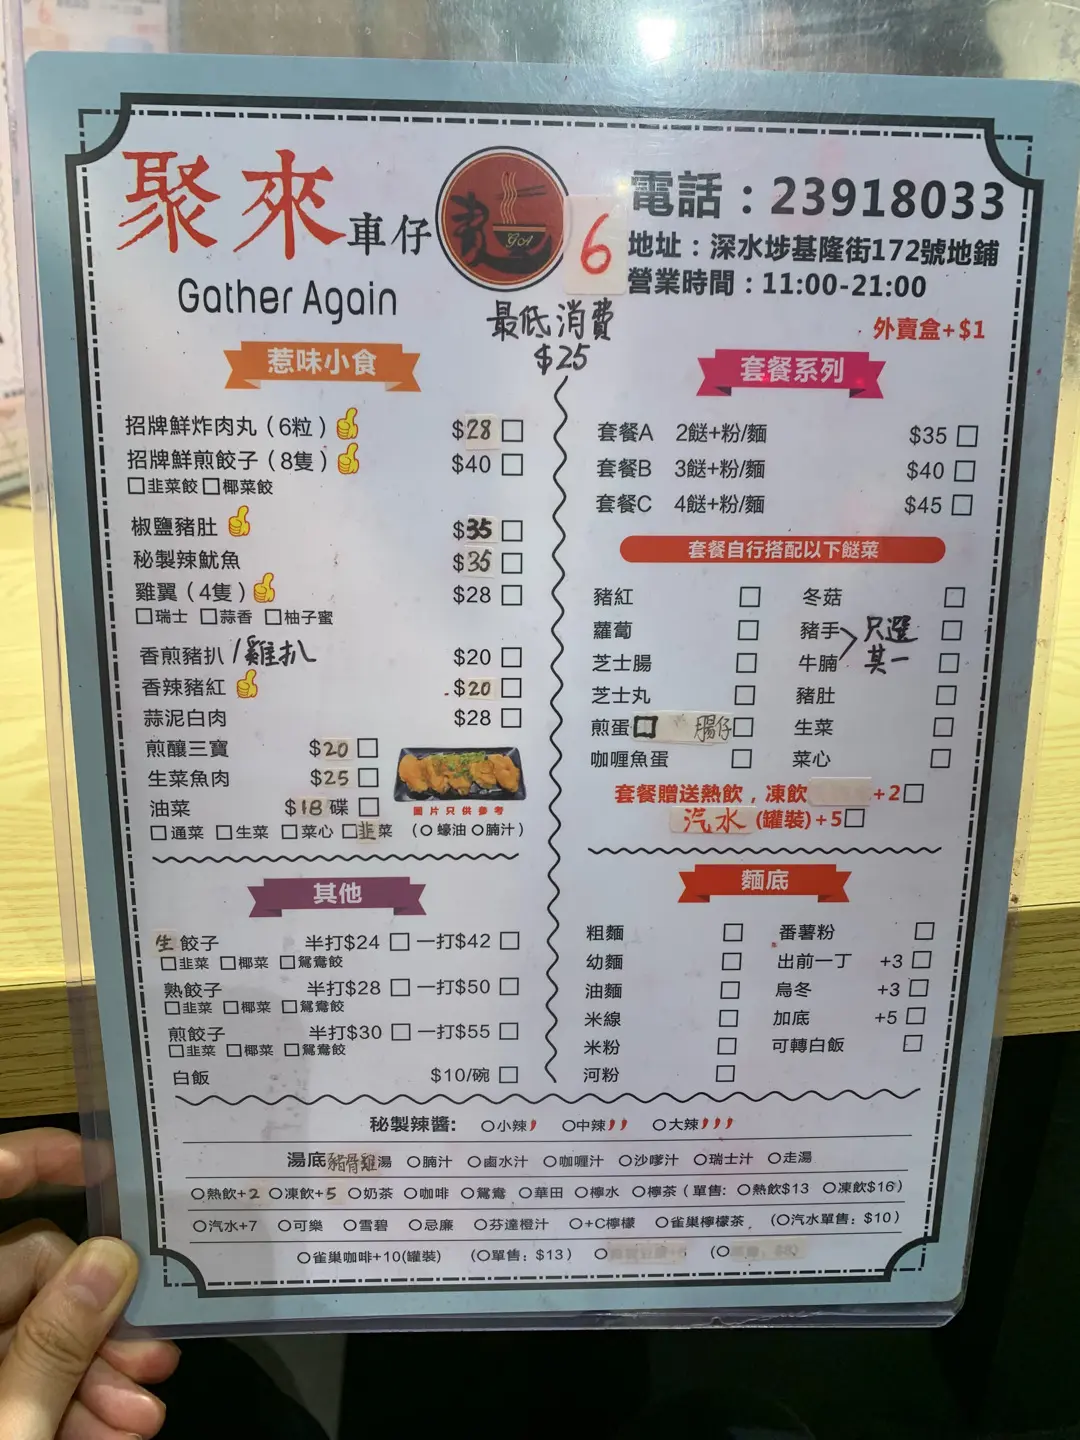 聚來車仔麵
GA
Gather Again
6
電話：23918033
地址：深水埗基隆街172號地鋪
營業時間：11:00-21:00
最低消費
$25
外賣盒+$1
惹味小食
招牌鮮炸肉丸（6粒） $28
招牌鮮煎餃子（8隻） $40
韭菜餃 椰菜餃
椒鹽豬肚 $35
秘製辣魷魚 $35
雞翼（4隻） $28
瑞士 蒜香 柚子蜜
香煎豬扒/雞扒 $20
香辣豬紅 $20
蒜泥白肉 $28
煎釀三寶 $20
生菜魚肉 $25
油菜 $18碟
圖片只供參考
通菜 生菜 菜心 韭菜 （蠔油 腩汁）
套餐系列
套餐A 2餸+粉/麵 $35
套餐B 3餸+粉/麵 $40
套餐C 4餸+粉/麵 $45
套餐自行搭配以下餸菜
豬紅 冬菇
蘿蔔 豬手
芝士腸 牛腩
只選其一
芝士丸 豬肚
煎蛋 腸仔 生菜
咖喱魚蛋 菜心
套餐贈送熱飲，凍飲 +2
汽水 (罐裝)+5
其他
生餃子 半打$24 一打$42
韭菜 椰菜 鴛鴦餃
熟餃子 半打$28 一打$50
韭菜 椰菜 鴛鴦餃
煎餃子 半打$30 一打$55
韭菜 椰菜 鴛鴦餃
白飯 $10/碗
麵底
粗麵 番薯粉
幼麵 出前一丁 +3
油麵 烏冬 +3
米線 加底 +5
米粉 可轉白飯
河粉
秘製辣醬: 小辣 中辣 大辣
湯底 豬骨雞湯 腩汁 鹵水汁 咖喱汁 沙嗲汁 瑞士汁 走湯
熱飲+2 凍飲+5 奶茶 咖啡 鴛鴦 華田 檸水 檸茶（單售: 熱飲$13 凍飲$16）
汽水+7 可樂 雪碧 忌廉 芬達橙汁 +C檸檬 雀巢檸檬茶 （汽水單售：$10）
雀巢咖啡+10(罐裝) （單售：$13）